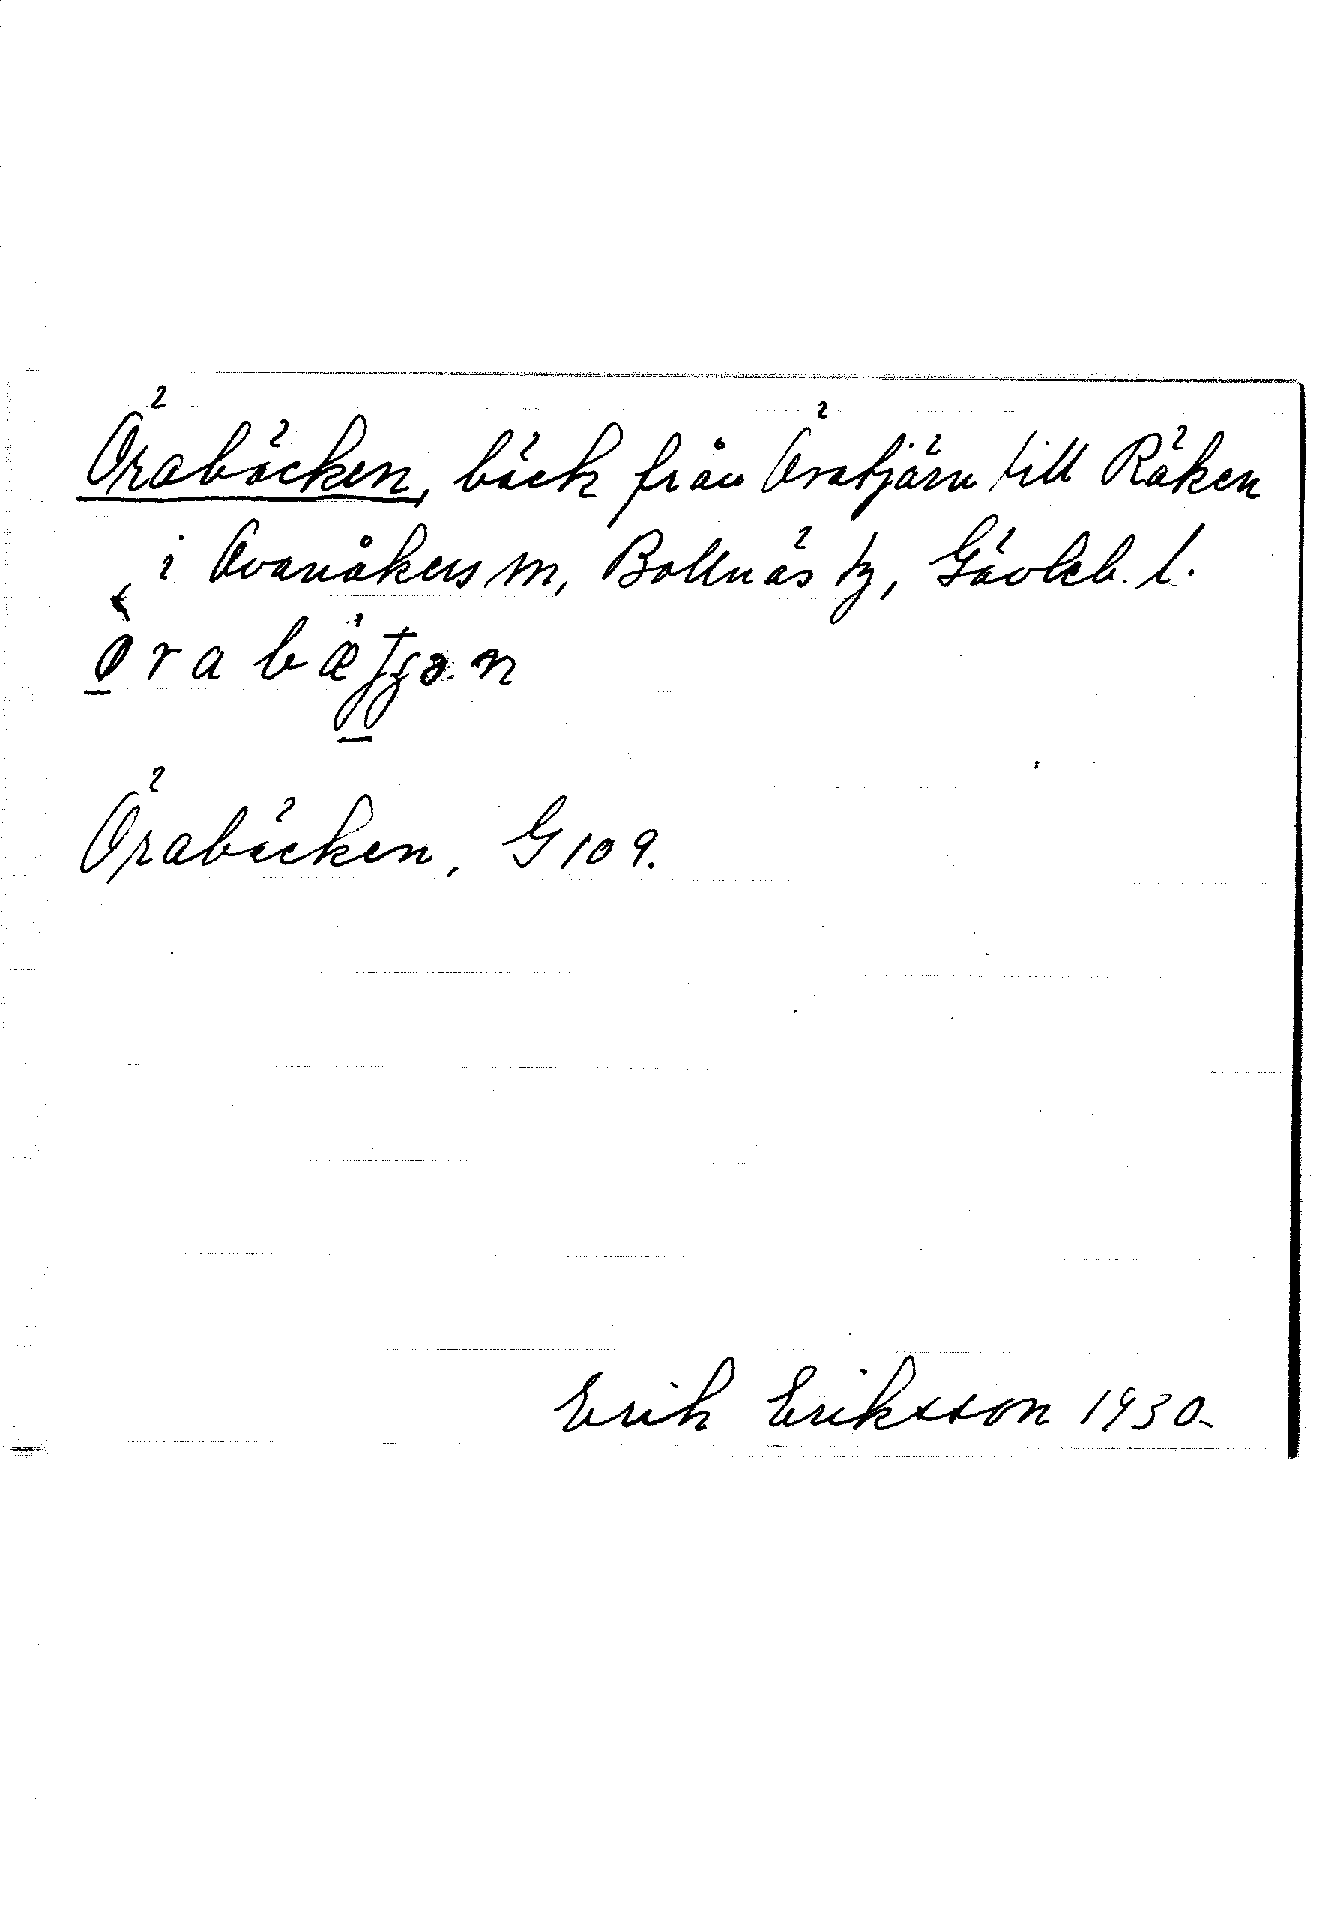 Örabäcken, bäck från Öratjärn till Räken
i Ovanåkers sn, Bollnäs tg, Gävleb. l.
Örabäcken, G 109.
Erik Eriksson 1930